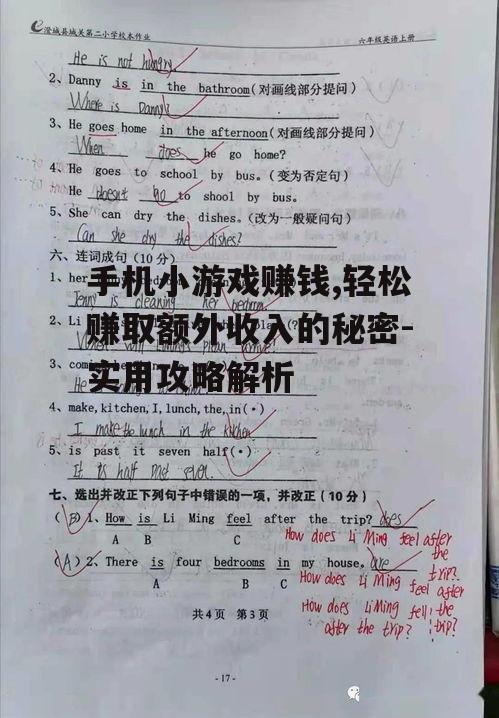 澄城县城关第二小学校本作业 六年级英语上册
He is not hungry
2、Danny is in the bathroom(对画线部分提问)
Where is Danny?
3、He goes home in the afternoon(对画线部分提问)
When does he go home?
4、He goes to school by bus。(变为否定句)
He doesn't go to shool by bus.
5、She can dry the dishes。(改为一般疑问句)
Can she dry the dishes?
六、连词成句(10分)
1、her
手机小游戏赚钱,轻松
Jenny is cleaning her bedroom
2、Li
赚取额外收入的秘密-
3、com
实用攻略解析
4、make,kitchen,I,lunch,the,in(·)
I make the lunch in the kitchen
5、is past it seven half(·)
It is half past seven.
七、选出并改正下列句子中错误的一项，并改正(10分)
(B)1、How is Li Ming feel after the trip? does
A B C
How does Li Ming feel after the trip?
(A)2、There is four bedrooms in my house. are
A B C
How does Li Ming feel after the trip?
How does Li Ming fell after the trip?
共4页 第3页
-17-